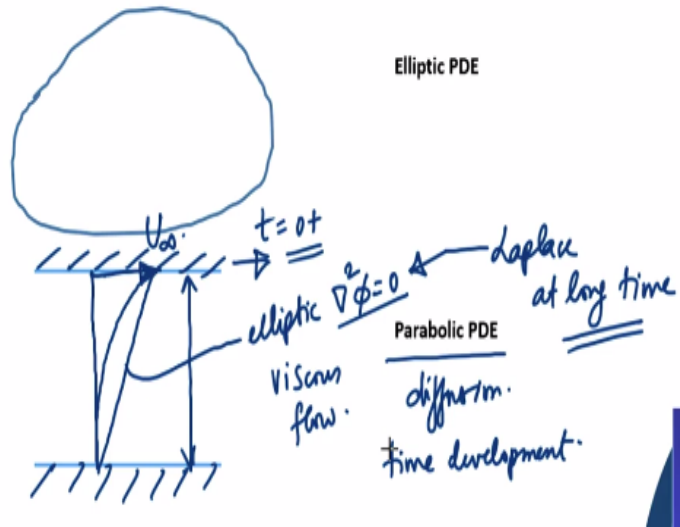 Elliptic PDE
U∞.
t=0+
elliptic ∇²φ=0
Laplace
at long time
Parabolic PDE
viscous
flow.
diffusion.
time development.